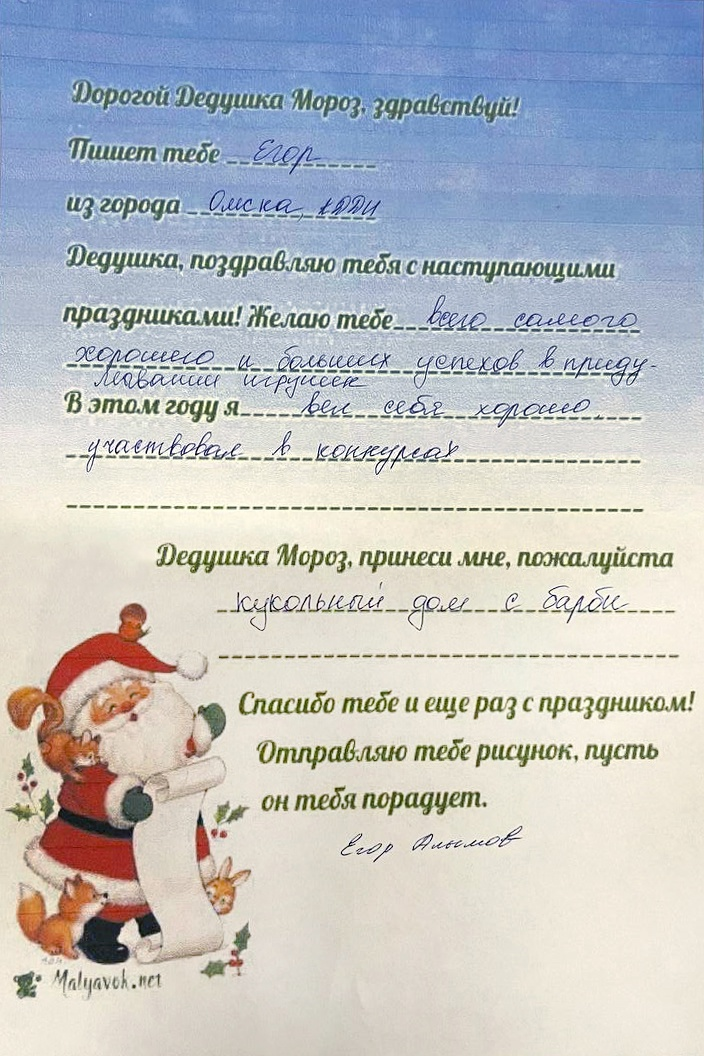 Дорогой Дедушка Мороз, здравствуй!
Пишет тебе Егор
из города Омска, КДДИ
Дедушка, поздравляю тебя с наступающими
праздниками! Желаю тебе всего самого
хорошего и больших успехов в приду-
мывании игрушек
В этом году я вел себя хорошо,
участвовал в конкурсах
Дедушка Мороз, принеси мне, пожалуйста
кукольный дом с барби
Спасибо тебе и еще раз с праздником!
Отправляю тебе рисунок, пусть
он тебя порадует.
Егор Алымов
Malyavok.net